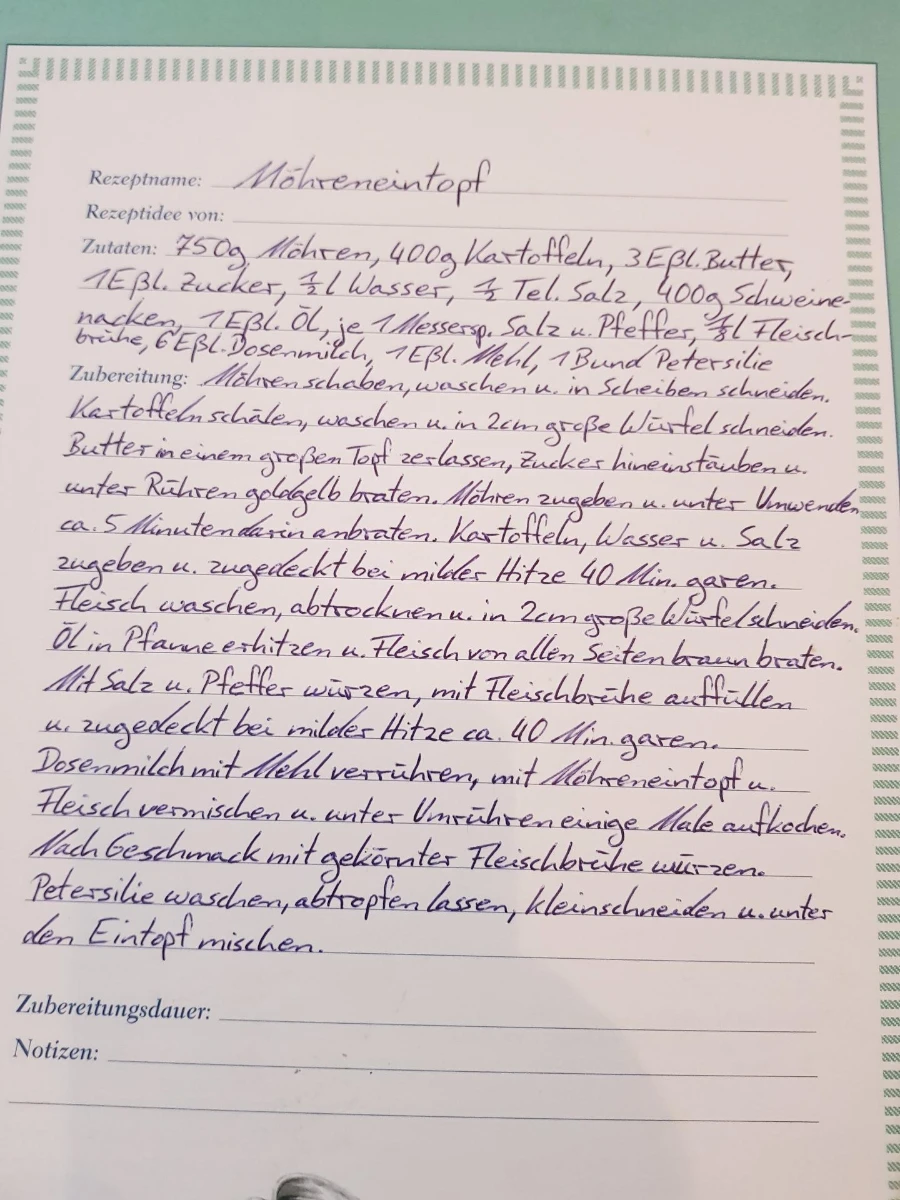 Rezeptname: Möhreneintopf
Rezeptidee von:
Zutaten: 750g Möhren, 400g Kartoffeln, 3 Eßl. Butter,
1 Eßl. Zucker, ½ l Wasser, ½ Tel. Salz, 400g Schweine-
nacken, 1 Eßl. Öl, je 1 Messersp. Salz u. Pfeffer, ⅛ l Fleisch-
brühe, 6 Eßl. Dosenmilch, 1 Eßl. Mehl, 1 Bund Petersilie
Zubereitung: Möhren schaben, waschen u. in Scheiben schneiden.
Kartoffeln schälen, waschen u. in 2cm große Würfel schneiden.
Butter in einem großen Topf zerlassen, Zucker hineinstäuben u.
unter Rühren goldgelb braten. Möhren zugeben u. unter Umwenden
ca. 5 Minuten darin anbraten. Kartoffeln, Wasser u. Salz
zugeben u. zugedeckt bei milder Hitze 40 Min. garen.
Fleisch waschen, abtrocknen u. in 2cm große Würfel schneiden.
Öl in Pfanne erhitzen u. Fleisch von allen Seiten braun braten.
Mit Salz u. Pfeffer würzen, mit Fleischbrühe auffüllen
u. zugedeckt bei milder Hitze ca. 40 Min. garen.
Dosenmilch mit Mehl verrühren, mit Möhreneintopf u.
Fleisch vermischen u. unter Umrühren einige Male aufkochen.
Nach Geschmack mit gekörnter Fleischbrühe würzen.
Petersilie waschen, abtropfen lassen, kleinschneiden u. unter
den Eintopf mischen.
Zubereitungsdauer:
Notizen: